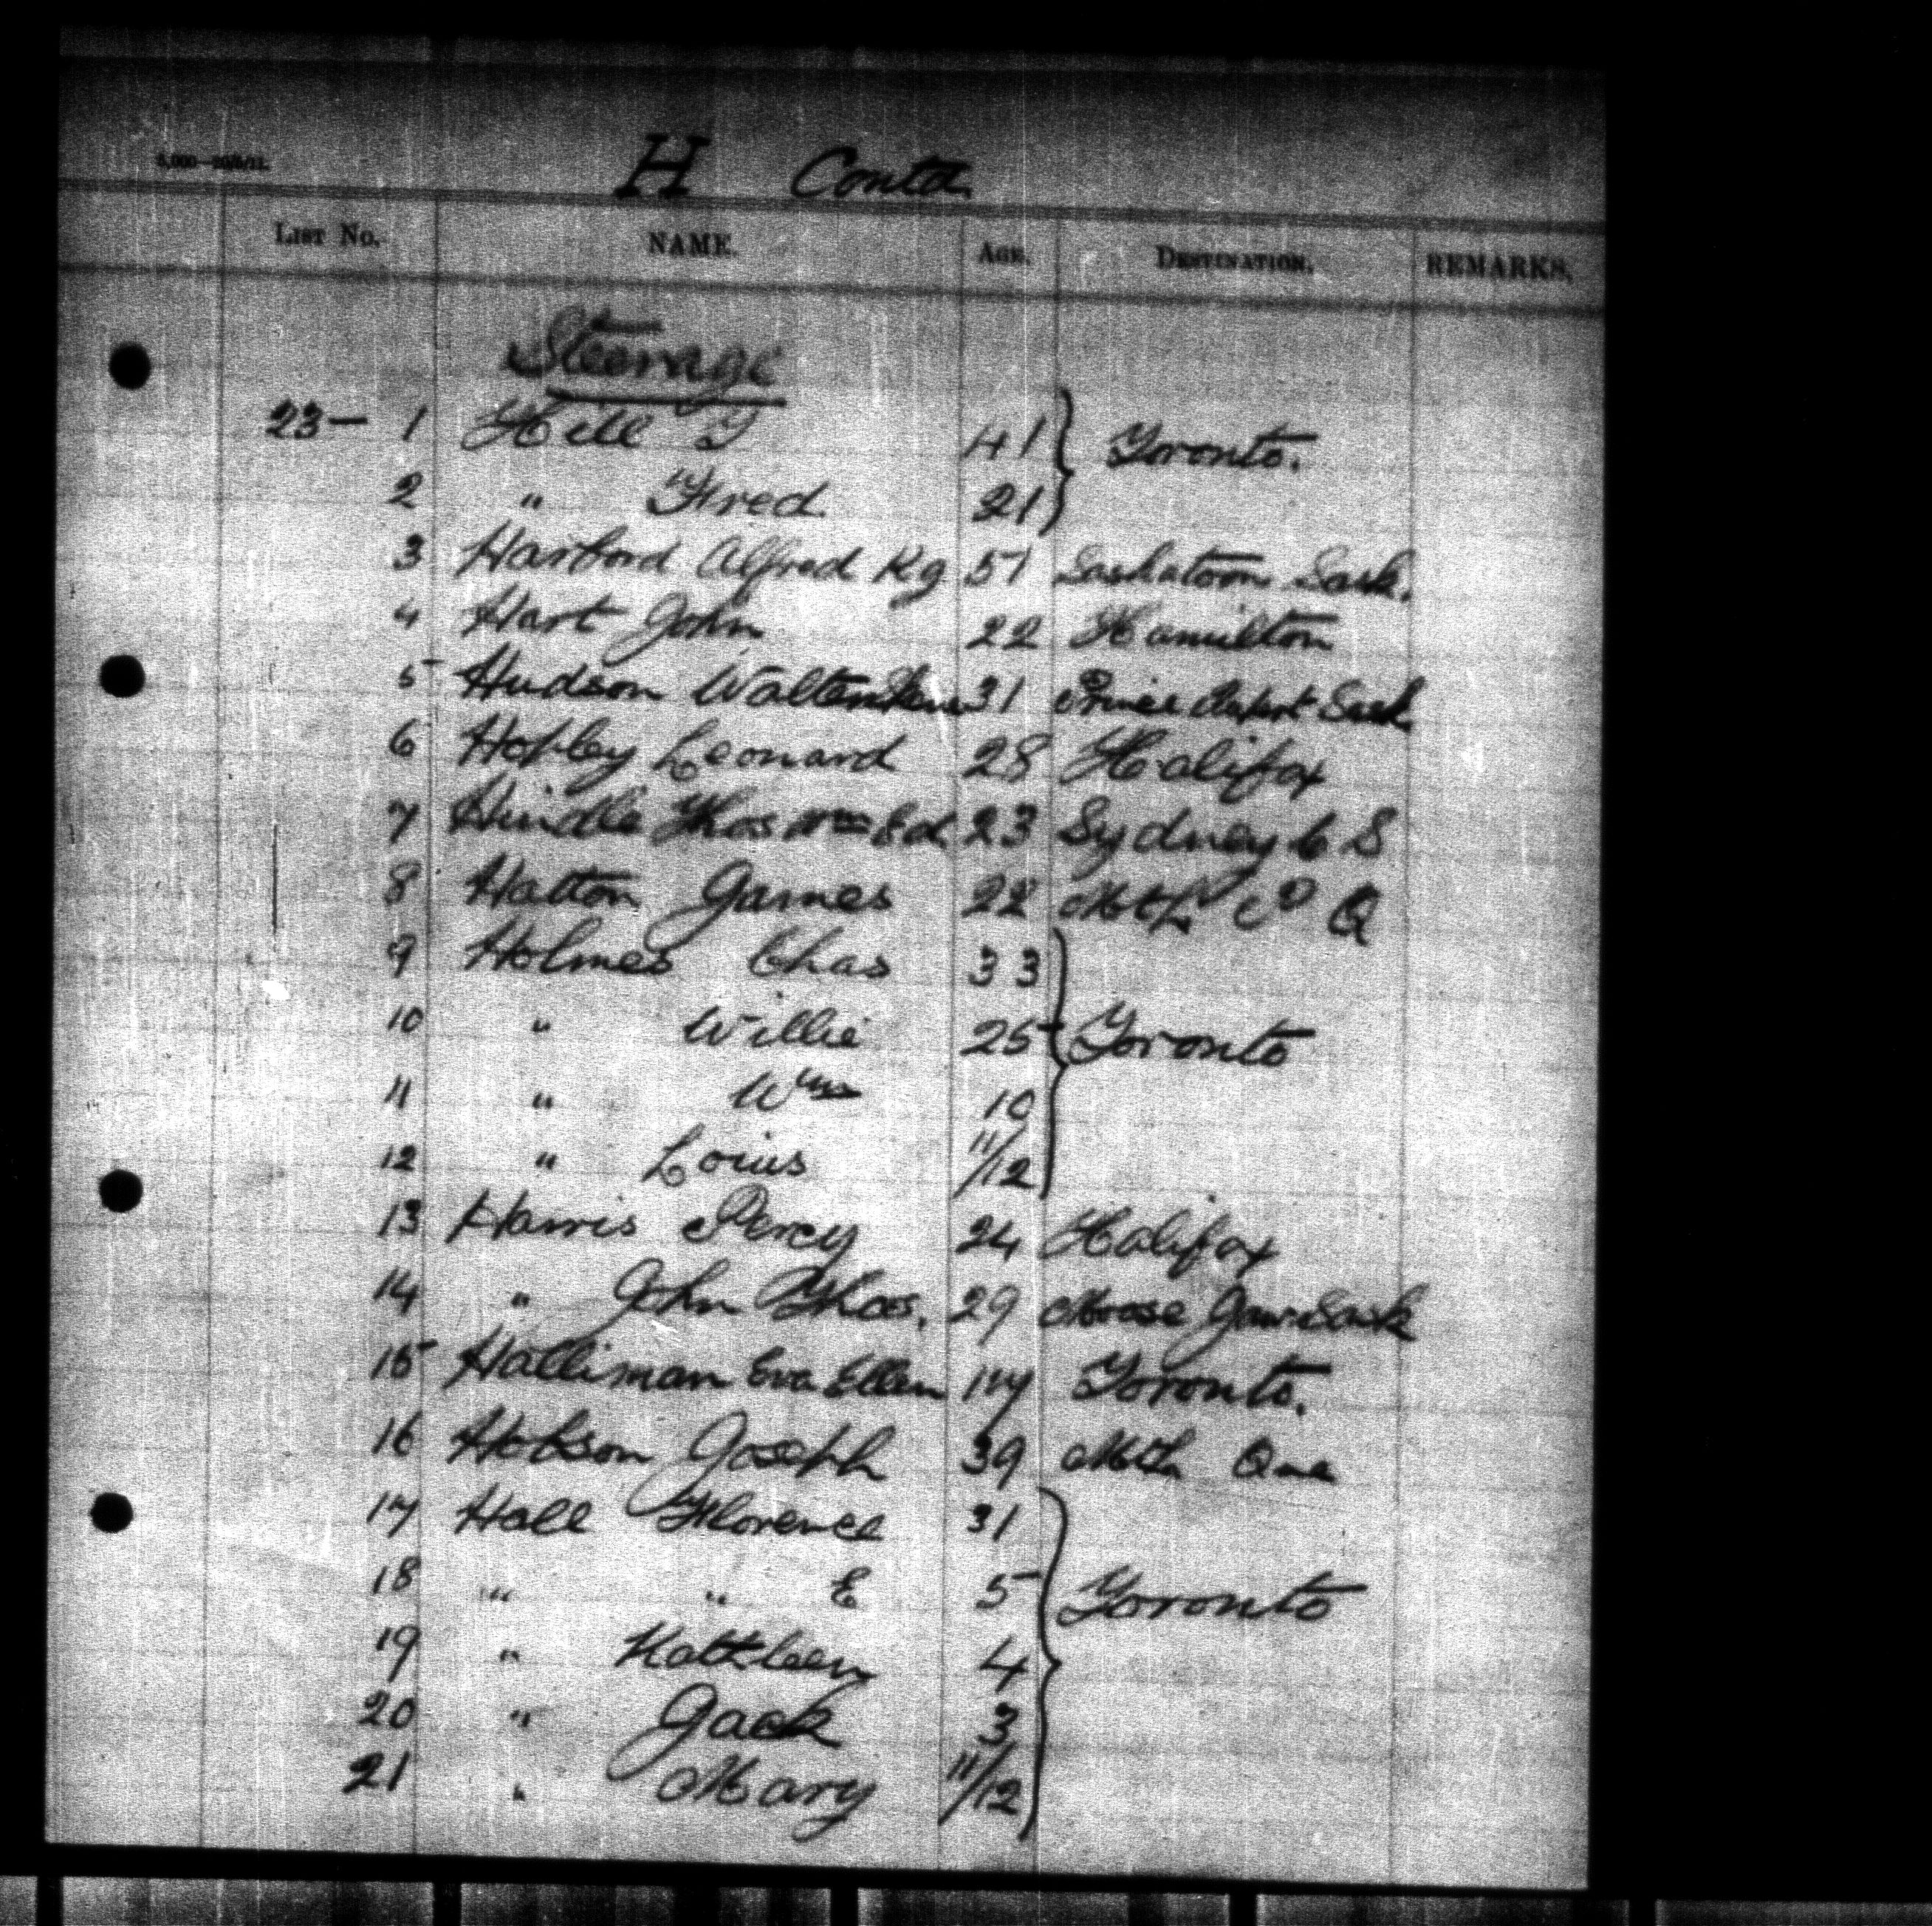 H Contd
List No. NAME. Age. Destination. REMARKS.
Steerage
23- 1 Hill T 41 Toronto.
2 " Fred 21
3 Harford Alfred Kg 51 Saskatoon Sask.
4 Hart John 22 Hamilton
5 Hudson Walter 31 Prince Rupert Sask
6 Hopley Leonard 28 Halifax
7 Hindle Thos Wm Ed 23 Sydney C S
8 Hatton James 22 Mtl P Q
9 Holmes Chas 33
10 " Willie 25 Toronto
11 " Wm 10
12 " Louis 11/12
13 Harris Percy 24 Halifax
14 " John Thos. 29 Moose Jaw Sask
15 Halliman Eva Ellen 17 Toronto.
16 Hobson Joseph 39 Mtl Que
17 Hall Florence 31
18 " " E 5 Toronto
19 " Kathleen 4
20 " Jack 3
21 " Mary 11/12